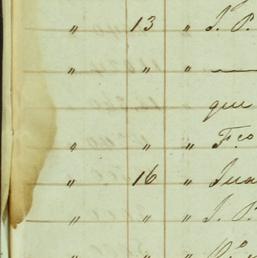 " 13 " J. P.
" " "
que
" " " F.co
" 16 " Jua
" " " J. P.
" " "